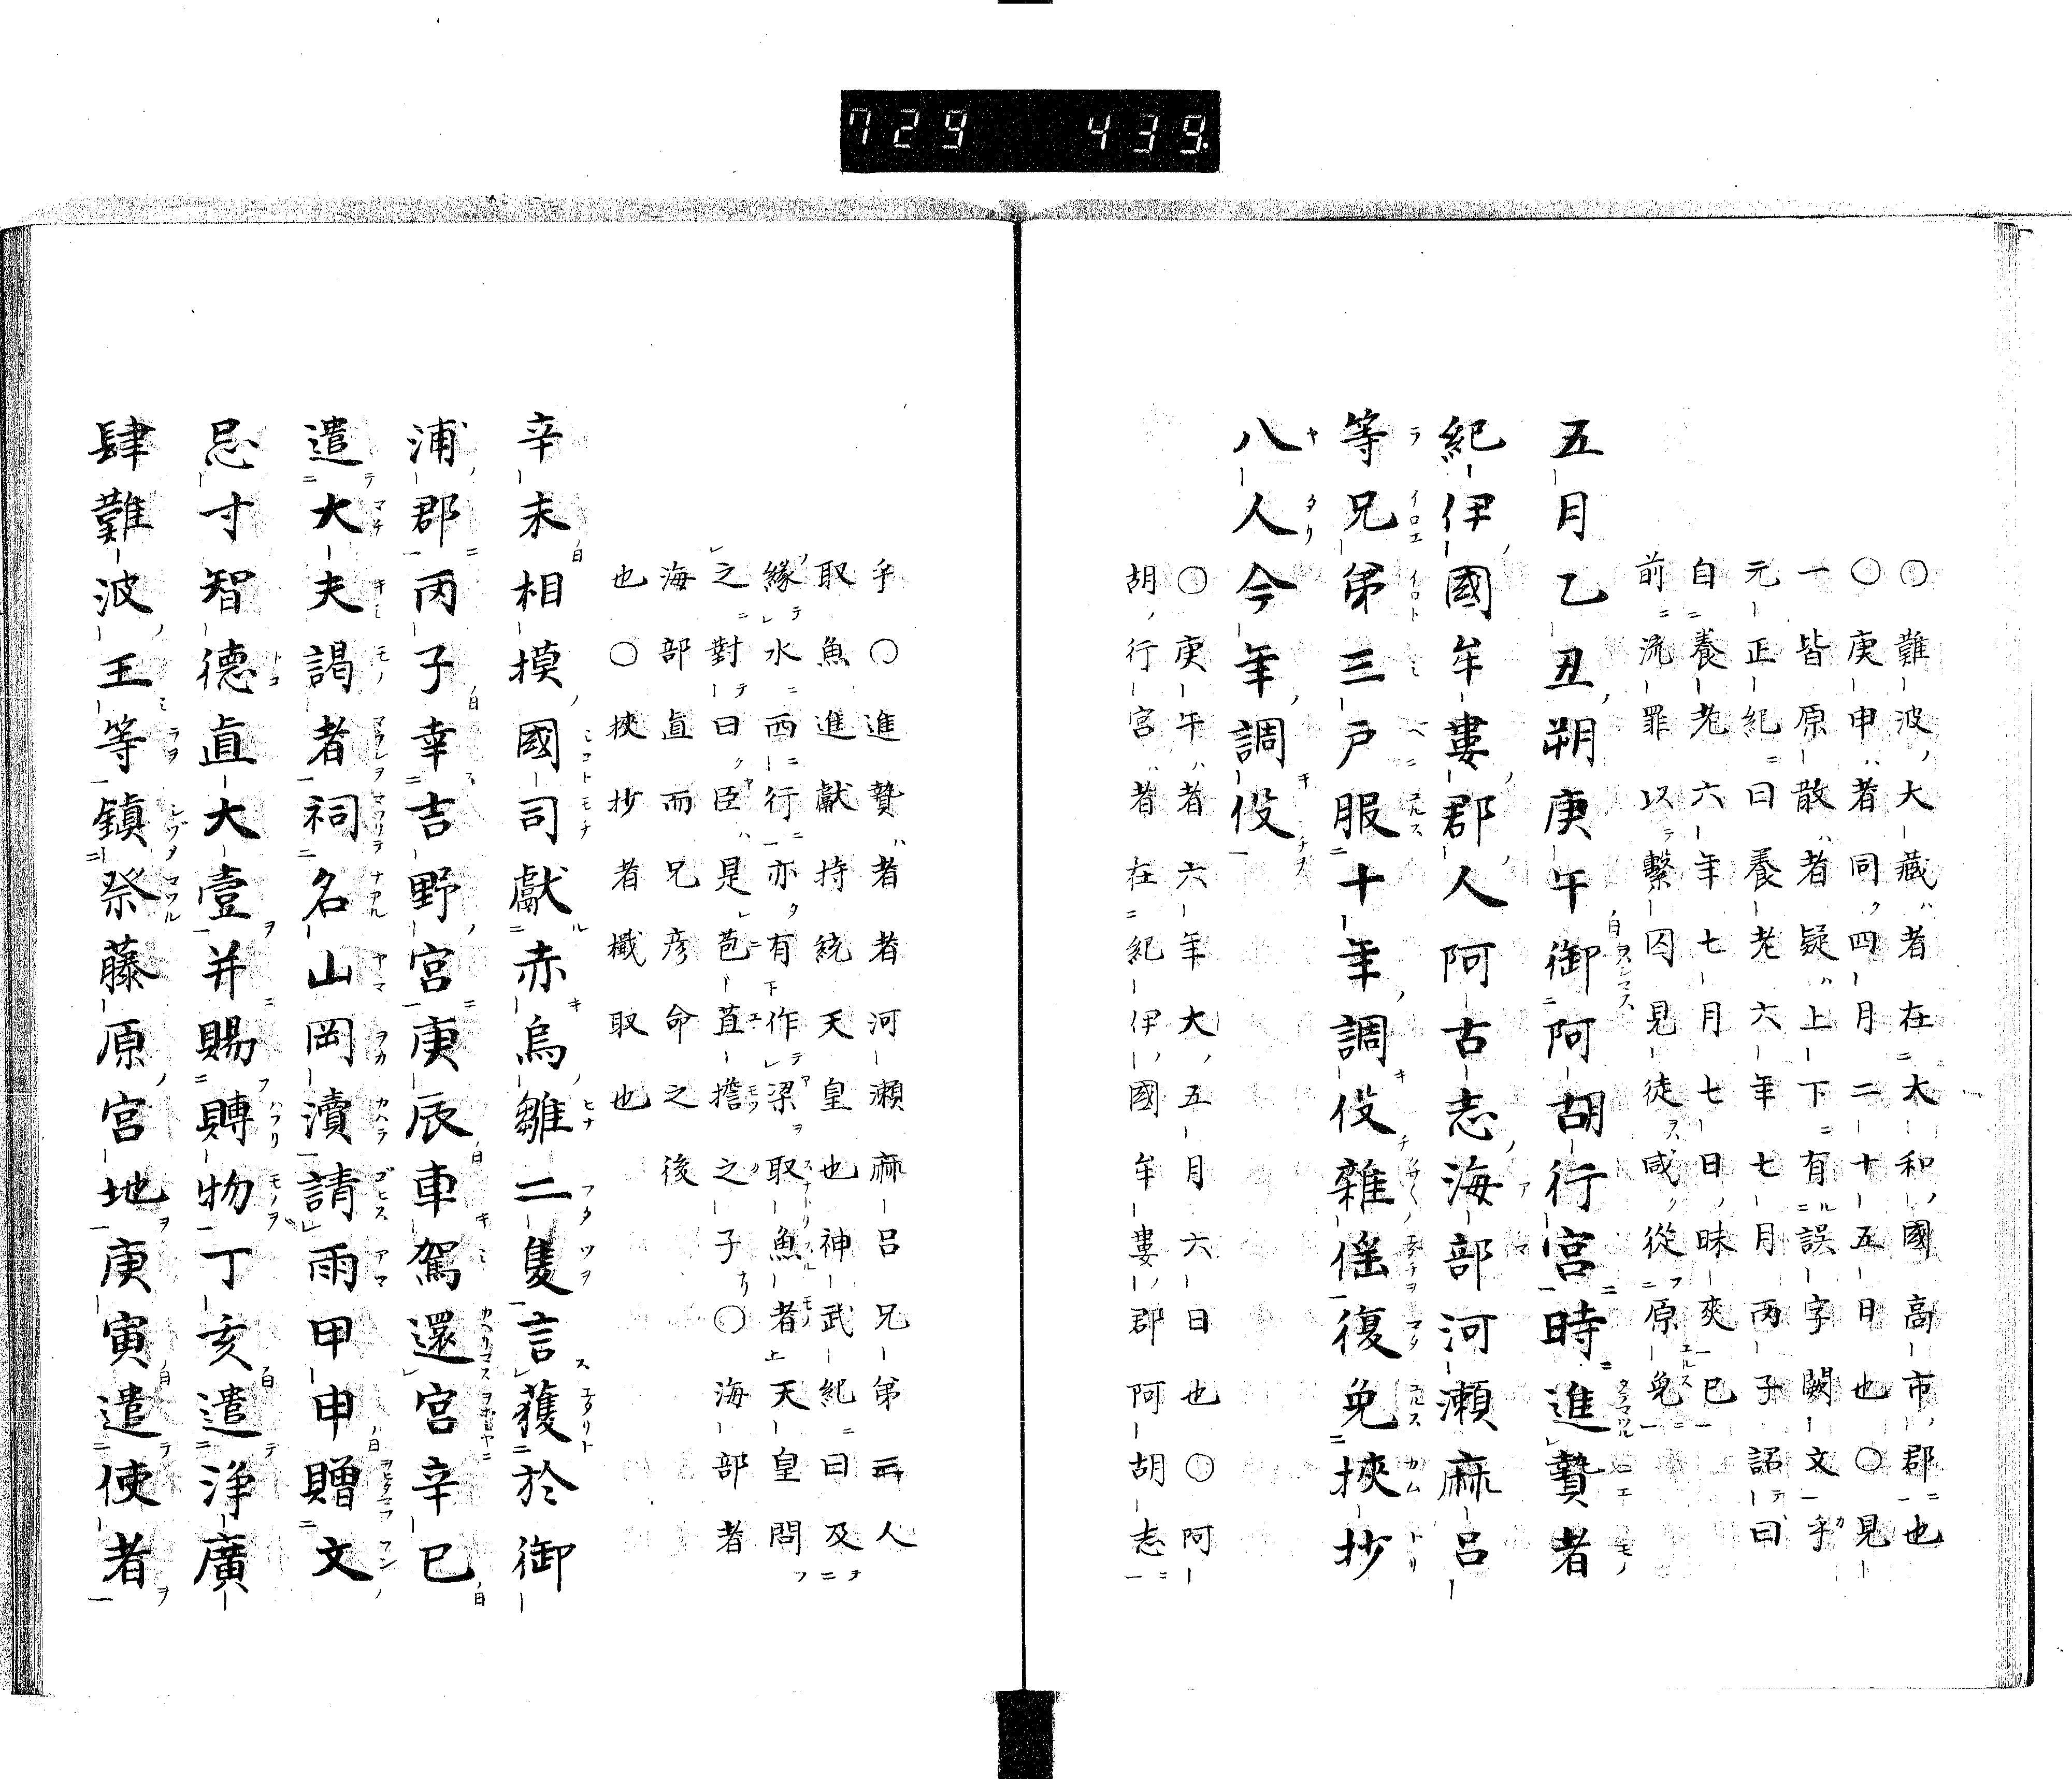 729 439.
〇難波大藏者在大和國高市郡也
〇庚申者同四月二十五日也〇見
一皆原散者疑上下有誤字闕文乎
元正紀曰養老六年七月丙子詔曰
自養老六年七月七日昧爽已
前流罪以繫囚見徒咸從原免
五月乙丑朔庚午御阿胡行宮時進贄者
紀伊國牟婁郡人阿古志海部河瀬麻呂
等兄弟三戸服十年調役雜徭復免挾抄
八人今年調役
〇庚午者六年大五月六日也〇阿
胡行宮者在紀伊國牟婁郡阿胡志
乎〇進贄者者河瀬麻呂兄弟三人
取魚進獻持統天皇也神武紀曰及
緣水西行亦有作梁取魚者天皇問
之對曰臣是苞苴擔之子〇海部者
海部直而兄彦命之後
也〇挾抄者檝取也
辛未相摸國司獻赤烏雛二隻言獲於御
浦郡丙子幸吉野宮庚辰車駕還宮辛巳
遣大夫謁者祠名山岡瀆請雨甲申贈文
忌寸智德直大壹并賜賻物丁亥遣浄廣
肆難波王等鎮祭藤原宮地庚寅遣使者